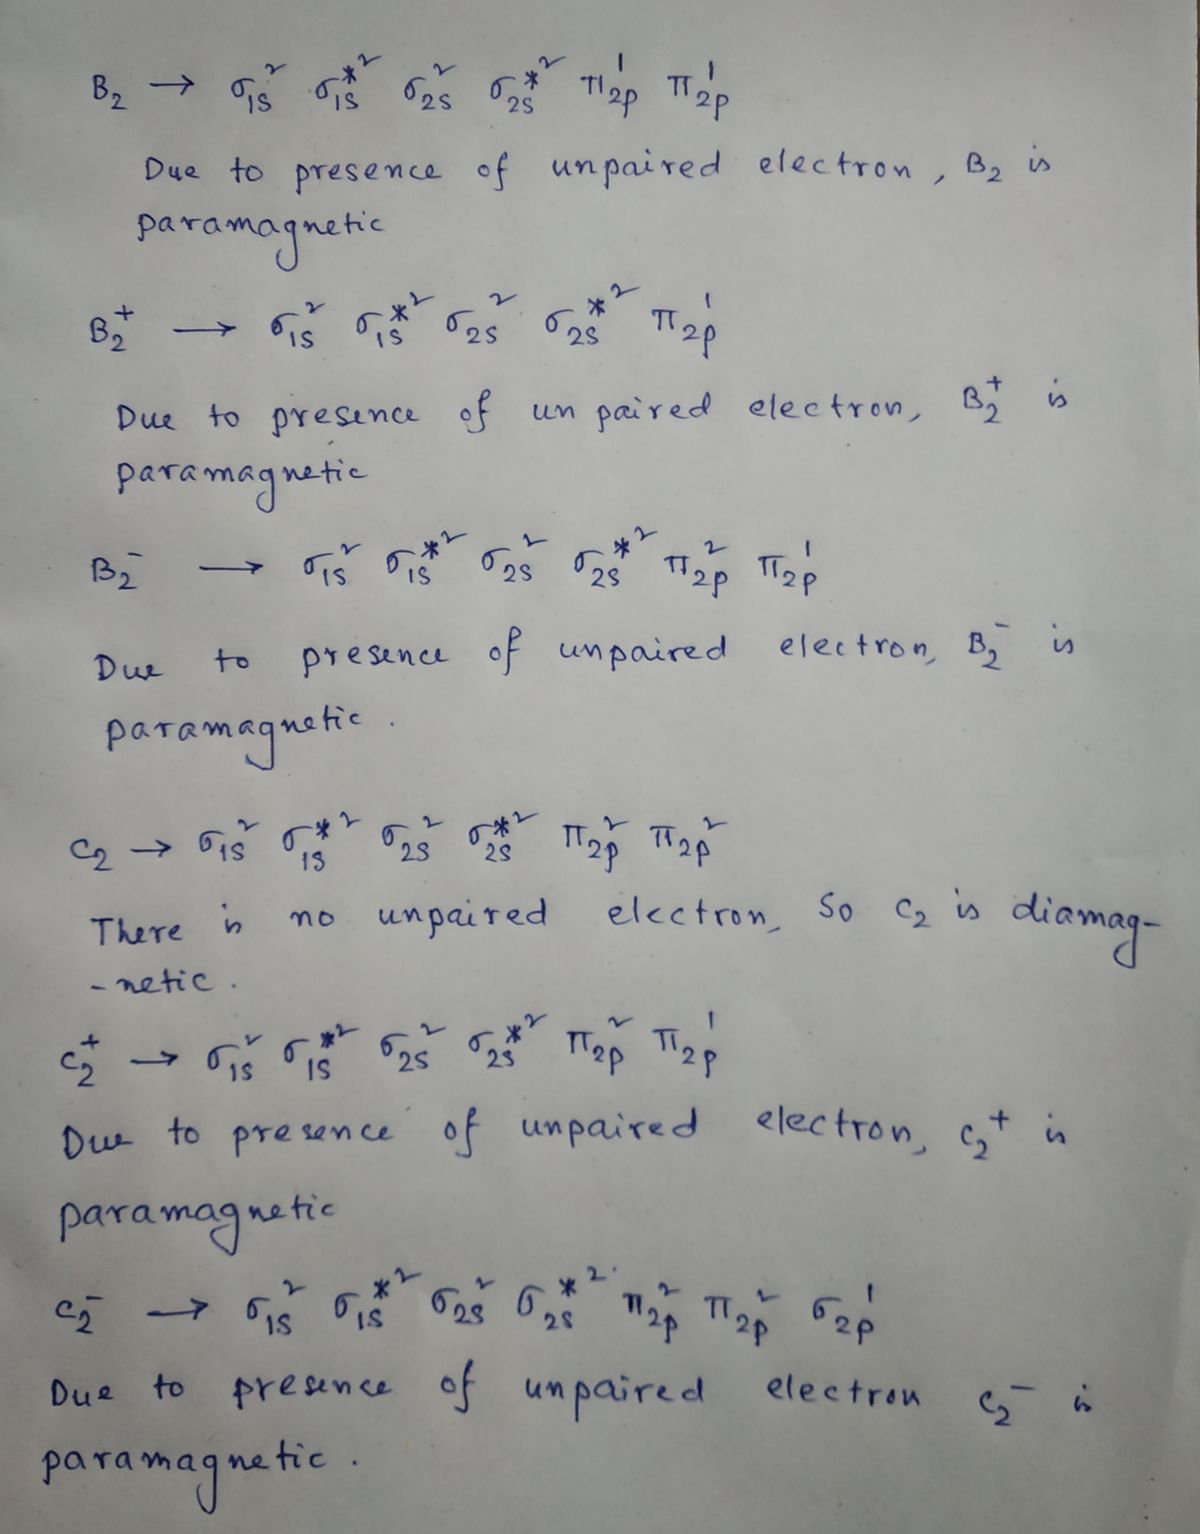 B₂ → σ1s² σ1s*² σ2s² σ2s*² π2p¹ π2p¹
Due to presence of unpaired electron, B₂ is
paramagnetic
B₂⁺ → σ1s² σ1s*² σ2s² σ2s*² π2p¹
Due to presence of unpaired electron, B₂⁺ is
paramagnetic
B₂⁻ → σ1s² σ1s*² σ2s² σ2s*² π2p² π2p¹
Due to presence of unpaired electron, B₂⁻ is
paramagnetic.
C₂ → σ1s² σ1s*² σ2s² σ2s*² π2p² π2p²
There is no unpaired electron, So C₂ is diamag-
-netic.
C₂⁺ → σ1s² σ1s*² σ2s² σ2s*² π2p² π2p¹
Due to presence of unpaired electron, C₂⁺ is
paramagnetic
C₂⁻ → σ1s² σ1s*² σ2s² σ2s*² π2p² π2p² σ2p¹
Due to presence of unpaired electron C₂⁻ is
paramagnetic.